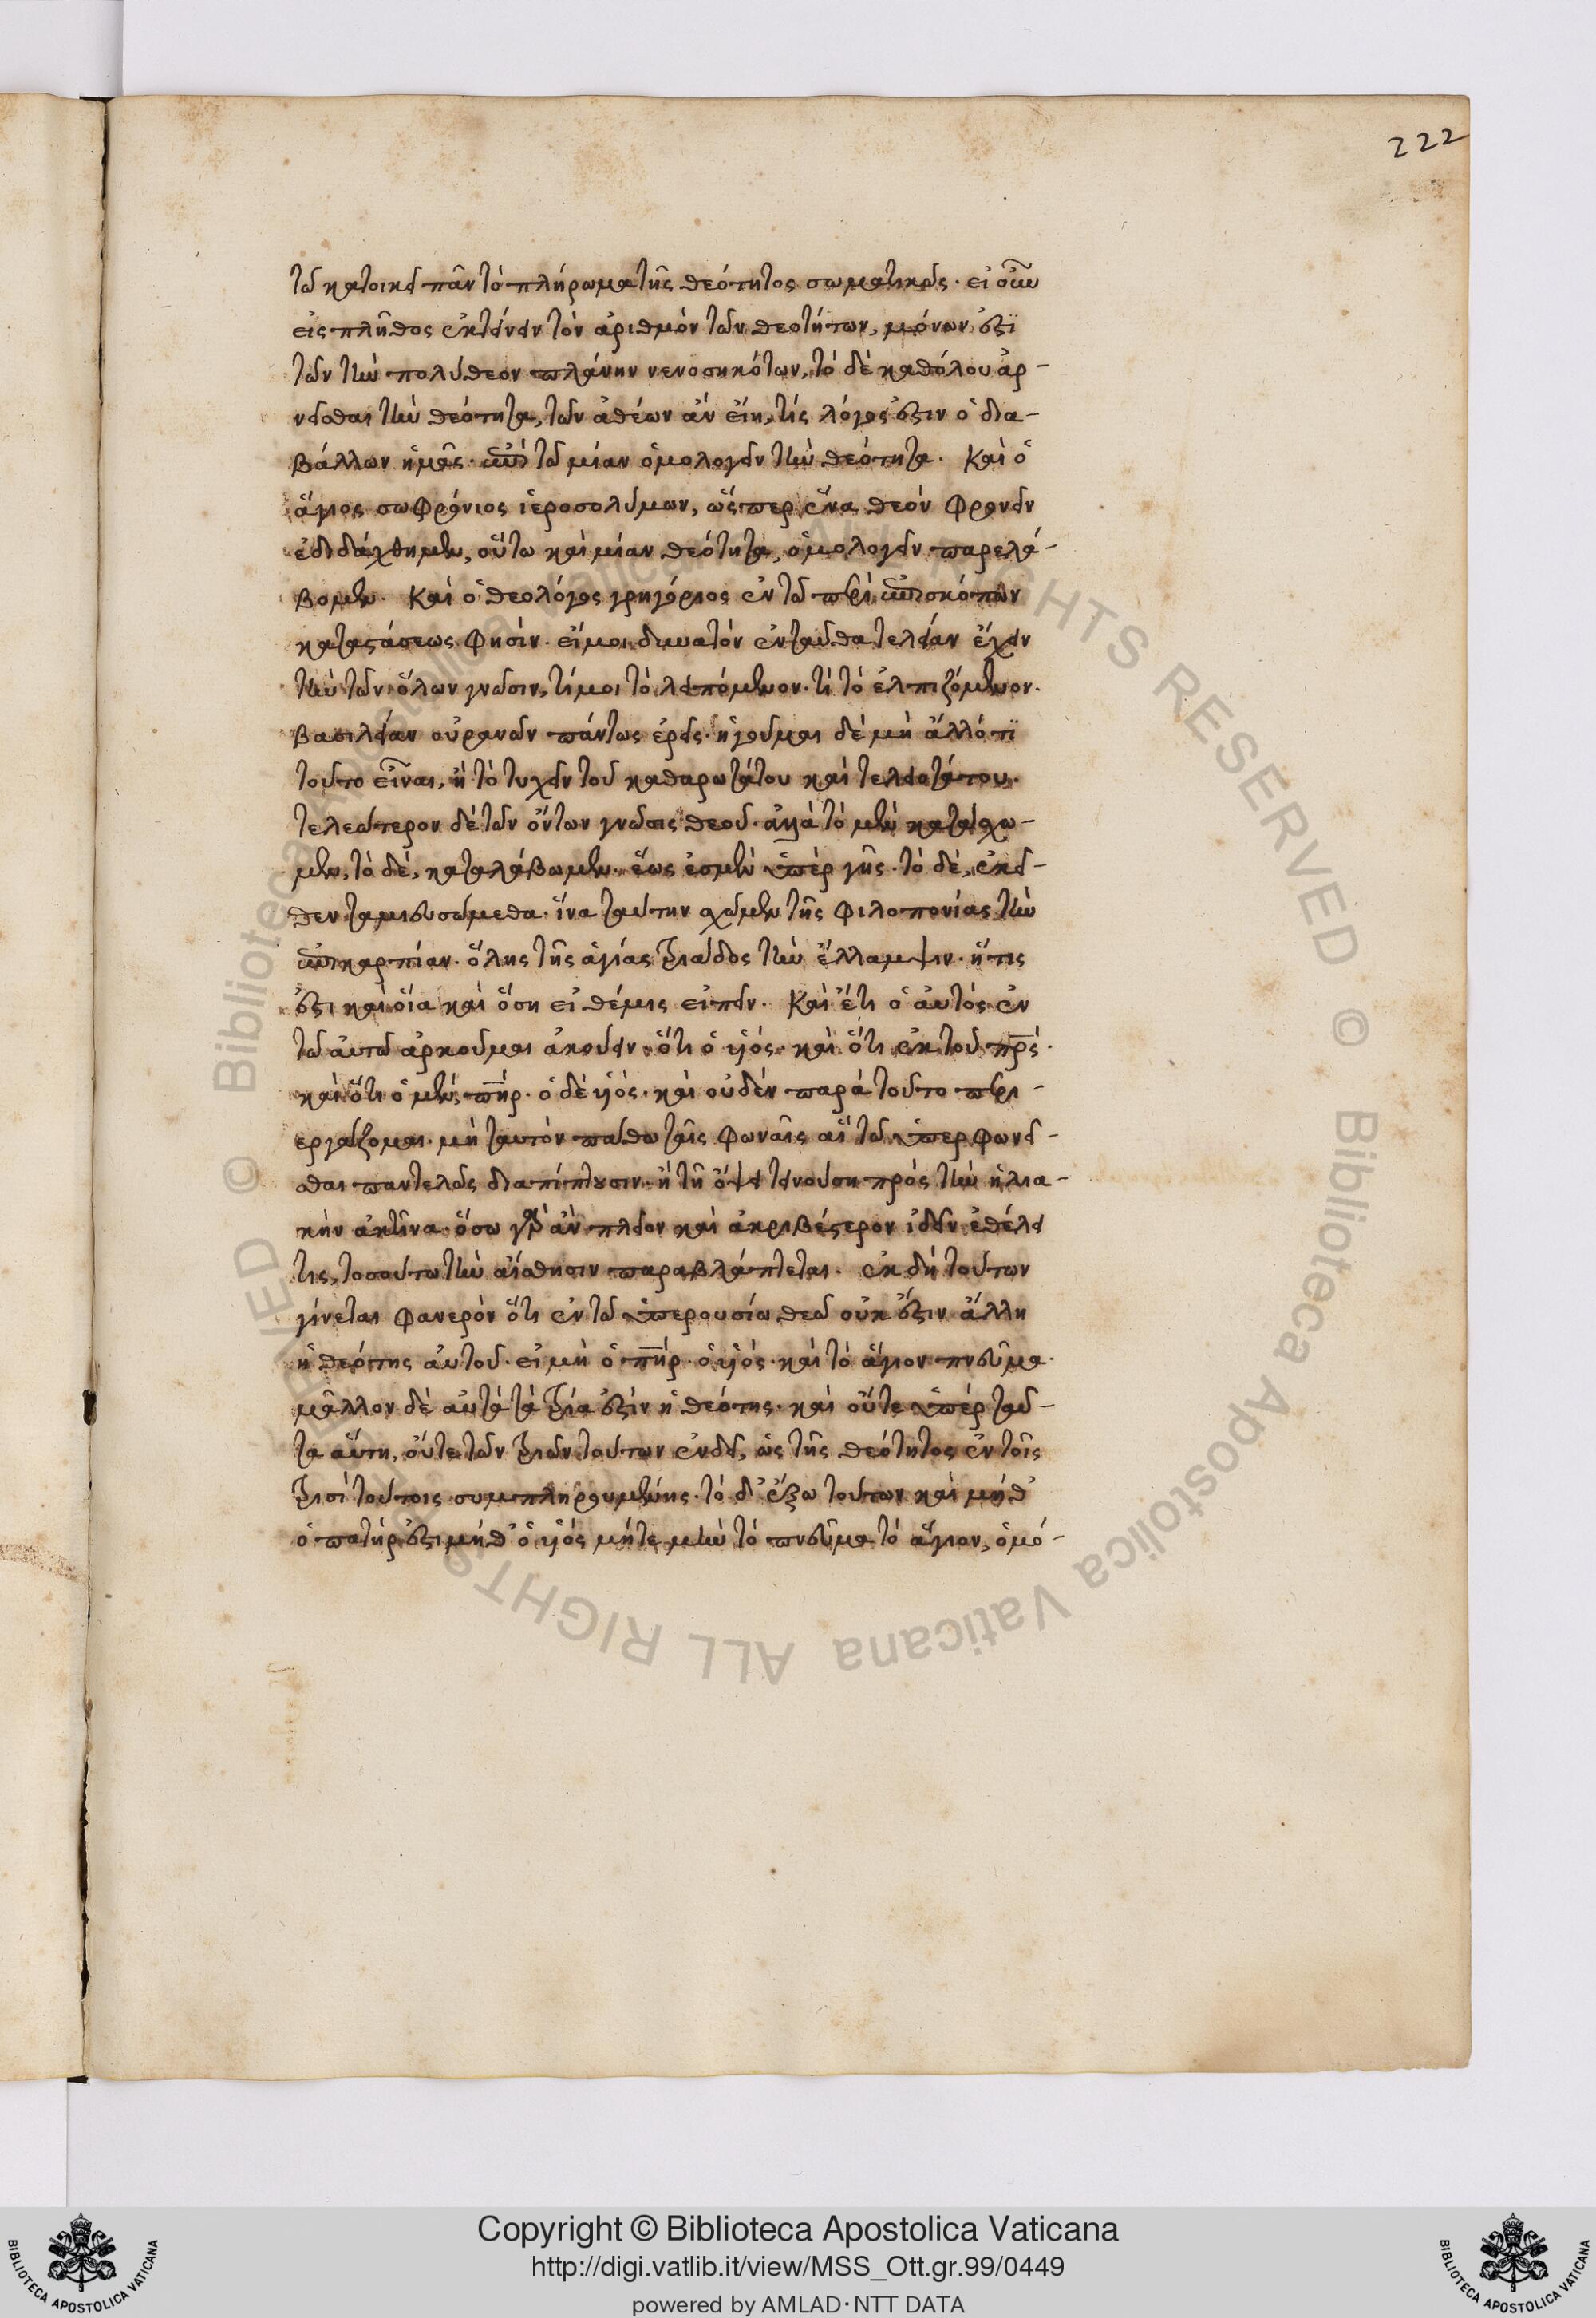 222
τῶ κατοικεῖ πᾶν τὸ πλήρωμα τῆς θεότητος σωματικῶς· εἰ οὖν
εἰς πλῆθος ἐκτείνειν τὸν ἀριθμὸν τῶν θεοτήτων, μόνων ἐστὶ
τῶν τὴν πολύθεον πλάνην νενοσηκότων, τὸ δὲ καθόλου ἀρ-
νεῖσθαι τὴν θεότητα, τῶν ἀθέων ἂν εἴη, τίς λόγος ἐστὶν ὁ δια-
βάλλων ἡμᾶς· ἐπὶ τῶ μίαν ὁμολογεῖν τὴν θεότητα. Καὶ ὁ
ἅγιος σωφρόνιος ἱεροσολύμων, ὥσπερ ἕνα θεὸν φρονεῖν
ἐδιδάχθημεν, οὕτω καὶ μίαν θεότητα, ὁμολογεῖν παρελά-
βομεν. Καὶ ὁ θεολόγος γρηγόριος ἐν τῶ περὶ ἐπισκόπων
καταστάσεως φησίν. εἴ μοι δυνατὸν ἐνταῦθα τελείαν ἔχειν
τὴν τῶν ὅλων γνῶσιν, τί μοι τὸ λειπόμενον· τί τὸ ἐλπιζόμενον·
βασιλείαν οὐρανῶν πάντως ἐρεῖς· ἡγοῦμαι δὲ μὴ ἄλλό τι
τοῦτο εἶναι, ἢ τὸ τυχεῖν τοῦ καθαρωτάτου καὶ τελεωτάτου.
τελεώτερον δὲ τῶν ὄντων γνῶσις θεοῦ· ἀλλὰ τὸ μὲν κατάσχω-
μεν, τὸ δὲ, καταλάβωμεν· ἕως ἐσμὲν ὑπὲρ γῆς· τὸ δὲ, ἐκεῖ-
θεν ταμιευσώμεθα· ἵνα ταύτην σχῶμεν τῆς φιλοπονίας τὴν
ἐπικαρπίαν· ὅλης τῆς ἁγίας τριάδος τὴν ἔλλαμψιν· ἥτις
ἐστὶ καὶ οἵα καὶ ὅση εἰ θέμις εἰπεῖν. Καὶ ἔτι ὁ αὐτὸς ἐν
τῶ αὐτῶ ἀρκοῦμαι ἀκούειν· ὅτι ὁ υἱός· καὶ ὅτι ἐκ τοῦ πρς·
καὶ ὅτι ὁ μὲν, πηρ· ὁ δὲ υἱός· καὶ οὐδὲν παρὰ τοῦτο περι-
εργάζομαι· μὴ ταυτὸν πάθω ταῖς φωναῖς αἳ τῶ ὑπερφωνεῖ-
σθαι παντελῶς διαπίπτουσιν· ἢ τῆ ὄψει τεινούση πρὸς τὴν ἡλια-
κὴν ἀκτῖνα· ὅσω γὰρ ἂν πλεῖον καὶ ἀκριβέστερον ἰδεῖν ἐθέλει
τις, τοσούτω τὴν αἴσθησιν παραβλάπτεται. ἐκ δὴ τούτων
γίνεται φανερὸν ὅτι ἐν τῶ ὑπερουσίω θεῶ οὐκ ἔστιν ἄλλη
ἡ θεότης αὐτοῦ· εἰ μὴ ὁ πηρ· ὁ υἱός· καὶ τὸ ἅγιον πνεῦμα·
μᾶλλον δὲ αὐτὰ τὰ τρία ἐστὶν ἡ θεότης· καὶ οὔτε ὑπὲρ ταῦ-
τα αὕτη, οὔτε τῶν τριῶν τούτων ἐνδεῖ, ὡς τῆς θεότητος ἐν τοῖς
τρισὶ τούτοις συμπληρουμένης· τὸ δ' ἔξω τούτων καὶ μήθ'
ὁ πατήρ ἐστι μήθ' ὁ υἱὸς μήτε μὴν τὸ πνεῦμα τὸ ἅγιον, ὁμό-
Copyright © Biblioteca Apostolica Vaticana
http://digi.vatlib.it/view/MSS_Ott.gr.99/0449
powered by AMLAD · NTT DATA